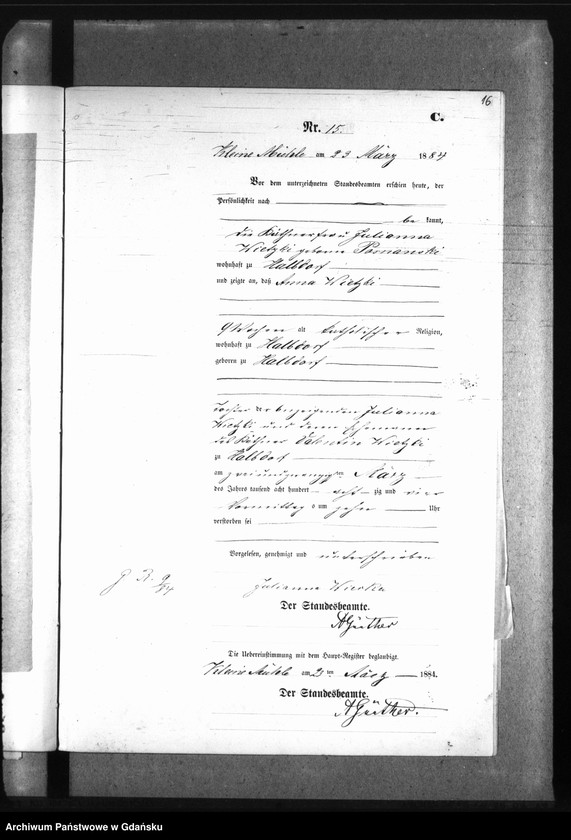 16
C.
Nr. 15.
Kleine Mühle am 23 März 1884
Vor dem unterzeichneten Standesbeamten erschien heute, der
Persönlichkeit nach
be kannt,
die Käthnerfrau Julianna
Wietzki geborne
wohnhaft zu Halbdorf
und zeigte an, daß Anna Wietzki
9 Wochen alt katholischer Religion,
wohnhaft zu Halbdorf
geboren zu Halbdorf
Tochter der Anzeigenden Julianna
Wietzki und deren Ehemann
des Käthner Valentin Wietzki
zu Halbdorf
am zweiundzwanzigten März
des Jahrs tausend acht hundert acht zig und vier
Vormittag s um zehn Uhr
verstorben sei
Vorgelesen, genehmigt und unterschrieben
Julianna
Der Standesbeamte.
AGüther
Die Uebereinstimmung mit dem Haupt-Register beglaubigt.
Kleine Mühle am März 1884.
Der Standesbeamte.
AGüther.
Archiwum Państwowe w Gdańsku